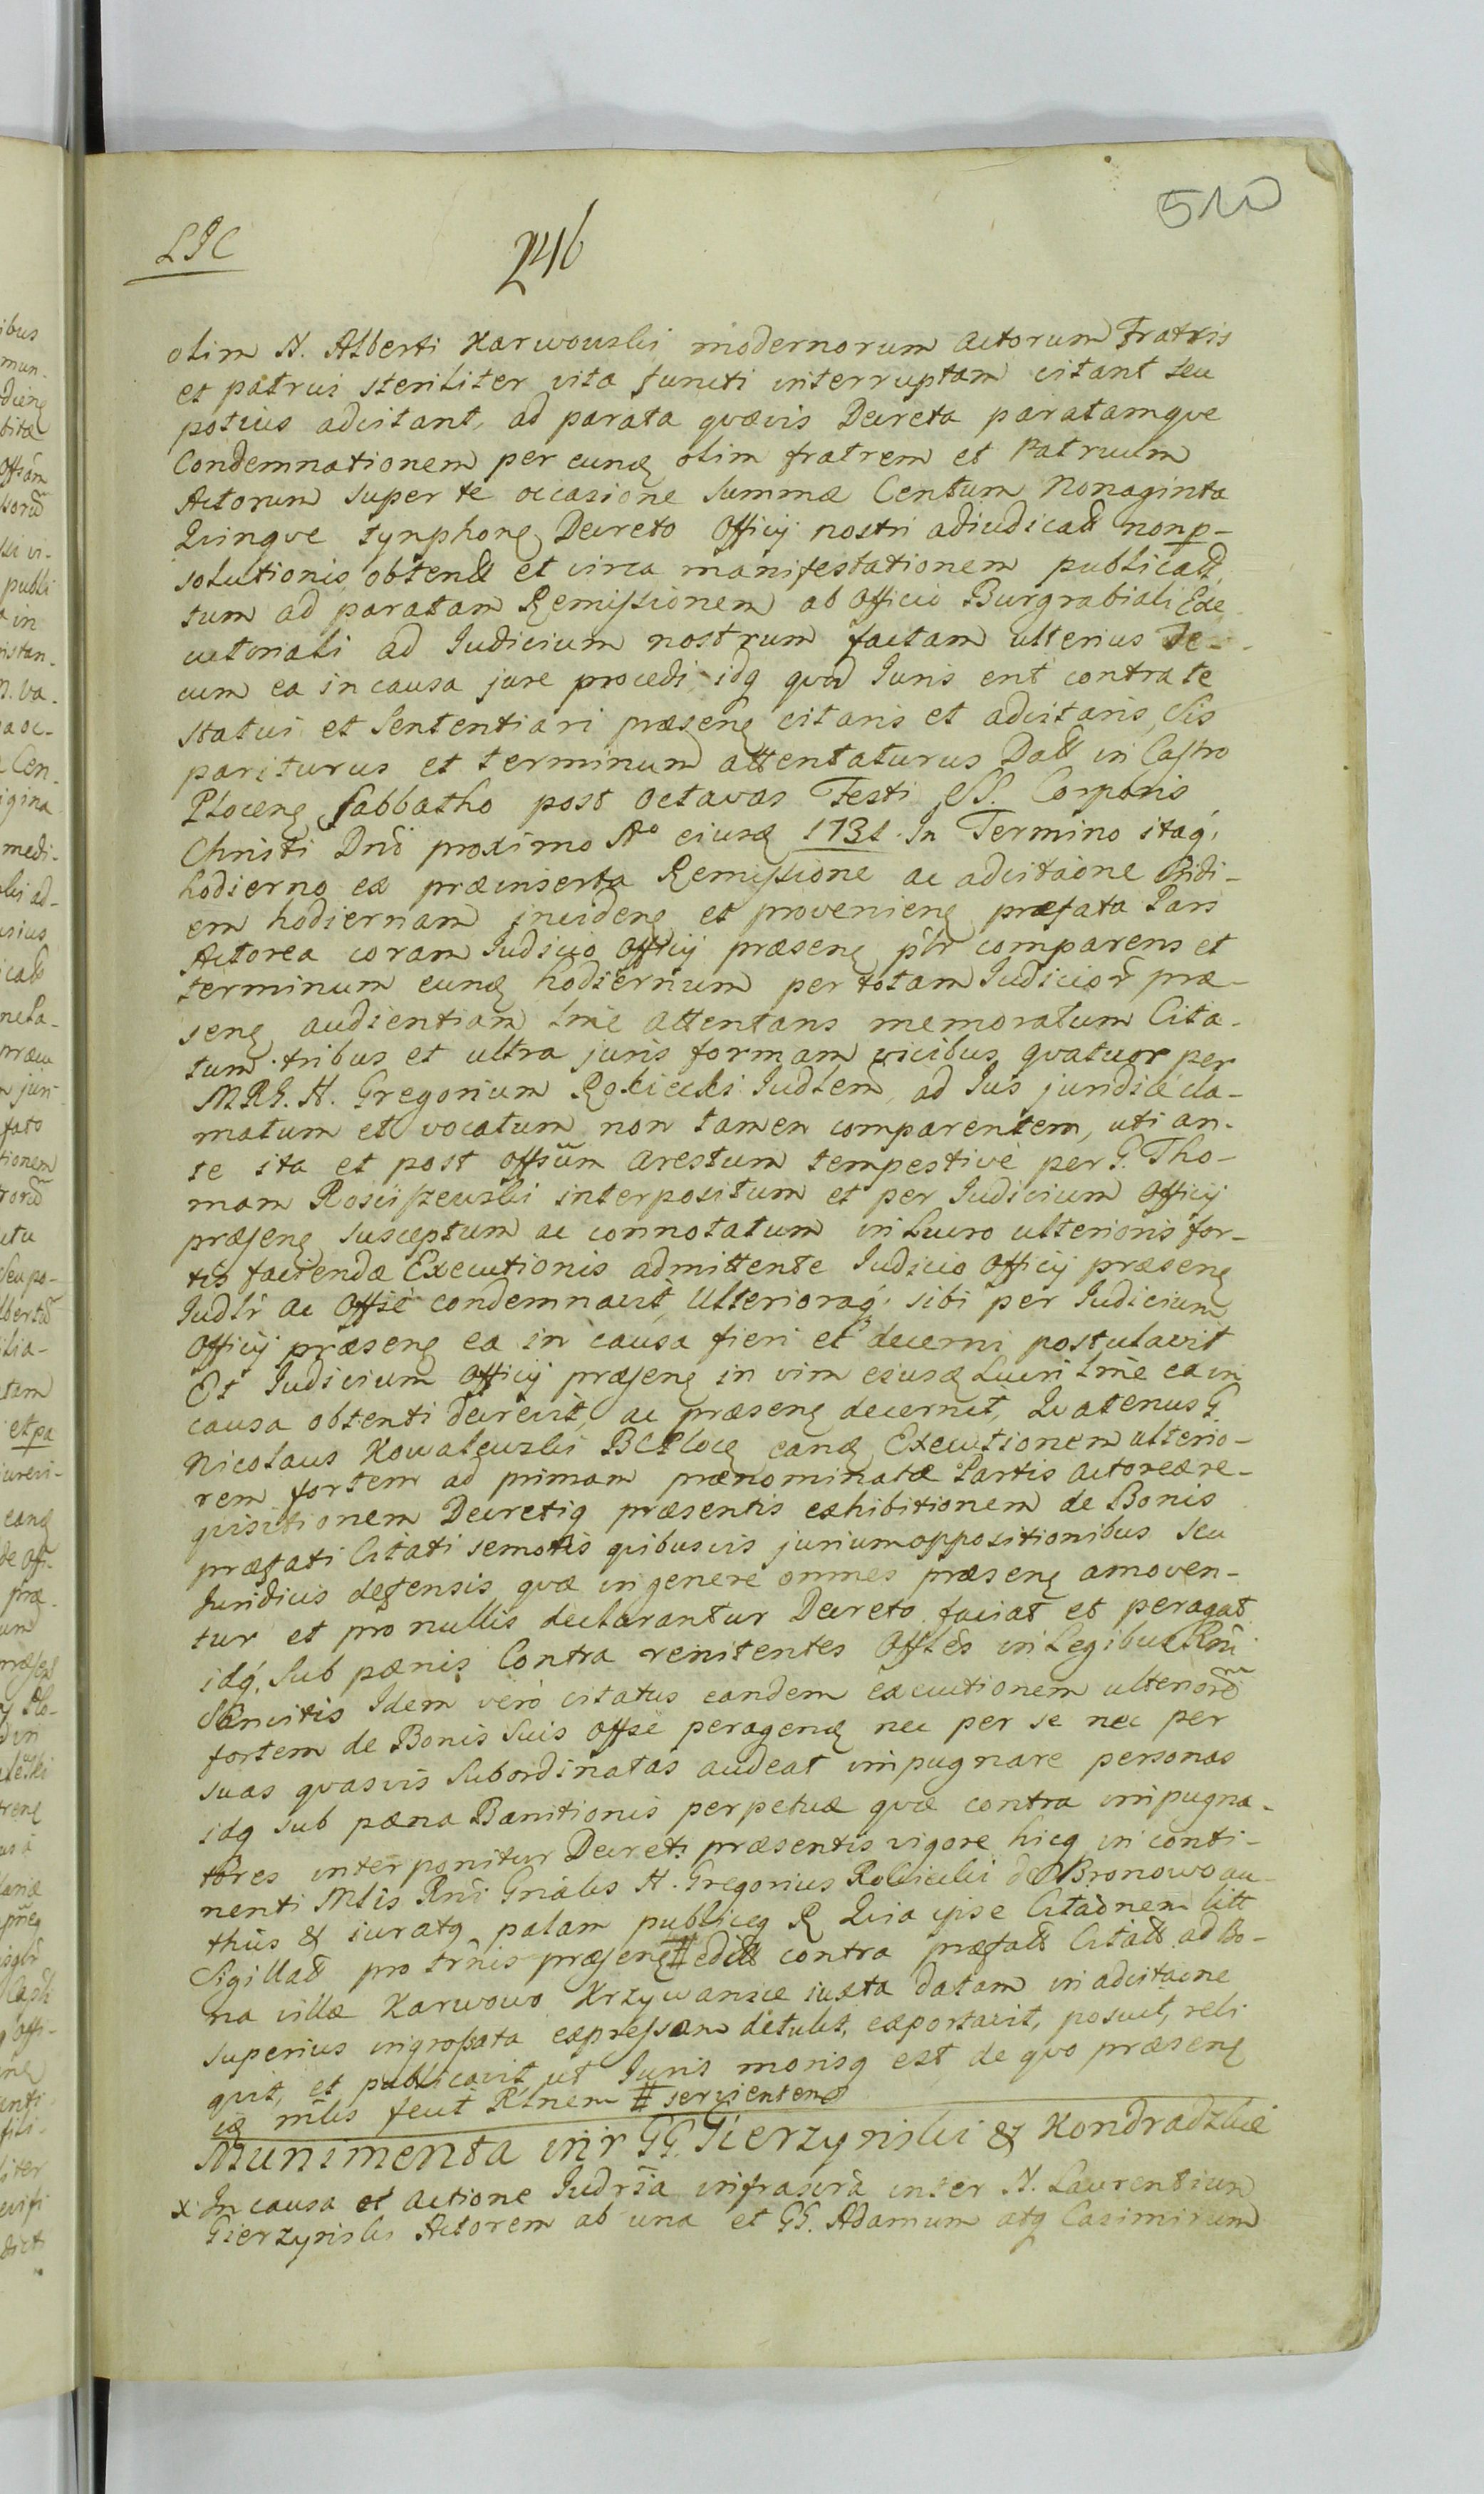 510
LJC
246
olim N. Alberti Karwowski modernorum Actorum Fratris
et patrui steriliter vita functi interruptam citant seu
potius adcitant, ad parata qvævis Decreta paratamqve
Condemnationem per eundꝫ olim fratrem et Patruum
Actorum super te occasione summæ Centum Nonaginta
Qvinqve tynphonꝫ Decreto Officij nostri adiudicatt nonp-
solutionis obtentt et circa manifestationem publicatt,
tum ad paratam Remissionem ab Officio Burgrabiali Exe
cutoriali ad Iudicium nostrum factam ulterius Te-
cum ea in causa jure procedi idq qvod Iuris erit contra te
statui et Sententiari præsenꝫ citaris et adcitaris, Sis
pariturus et terminum attentaturus Datt in Castro
Plocenꝫ Sabbatho post Octavas Festi SS. Corporis
Christi Dnĩ proximo Aº eiusdꝫ 1731. In Termino itaq,
hodierno ex præinserta Remissione ac adcitãone ad di-
em hodiernam incidenꝫ et provenienꝫ præfata Pars
Actorea coram Iudicio Officij præsenꝫ plr comparens et
terminum eundꝫ hodiernum per totam Iudicior præ-
senꝫ audientiam lme attentans memoratum Cita-
tum tribus et ultra juris formam vicibus qvatuor per
MRG. N. Gregorium Rokicki Iudlem, ad Ius juridicè cla-
matum et vocatum non tamen comparentem, uti an-
te ita et post Offsũm Arestum tempestivè per G. Tho-
mam Rosciszewski interpositum et per Iudicium Officij
præsenꝫ susceptum ac connotatum in Lucro ulterioris for-
tis faciendæ Executionis admittente Iudicio Officij præsenꝫ
Iudlr ac Offse condemnavit, Ulterioraq, sibi per Iudicium
Officij præsenꝫ ea in causa fieri et decerni postulavit
Et Iudicium Officij præsenꝫ in vim eiusdꝫ Lucri lme ea in
causa obtenti decrevit, ac præsenꝫ decernit, Qvatenus G.
Nicolaus Kowalewski BCPlocꝫ eandꝫ Executionem ulterio-
rem fortem ad primam prænominatæ Partis Actoreæ re-
qvisitionem Decretiq præsentis exhibitionem de Bonis
præfati Citati semotis qvibusvis jurium oppositionibus seu
Iuridicis defensis qvæ in genere omnes præsenꝫ amoven-
tur et pro nullis declarantur Decreto faciat et peragat
idq, Sub pænis Contra renitentes Offles in Legibus Rni
Sancitis Idem verò citatus eandem executionem ulteriorem
fortem de Bonis Suis Offse peragendꝫ nec per se nec per
suas qvasvis Subordinatas audeat impugnare personas
idq sub pæna Banitionis perpetuæ qvæ contra impugna-
tores interponitur Decreti præsentis vigore hicq in conti-
nenti Mlis Rni Gnalis N. Gregorius Rokicki de Bronowo au-
thus & iuratq palam publiceq R Qvia ipse Citaõnem litt
Sigillatt pro trnis præsenꝫ # editt contra præfatt Citatt ad Bo-
na villæ Karwowo Krzywanice iuxta datam in adcitãone
superius ingrossata expressam detulit, exportavit, posuit, reli
qvit, et publicavit ut Iuris morisq est de qvo præsenꝫ
idꝫ mlis fecit Rlnem # servientem
Munimenta intr GG. Gierzynski & Kondradzkie
x In causa et actione Iudrĩa infrascra inter N. Laurentium
Gierzynski Actorem ab una et GG. Adamum atq Casimirum